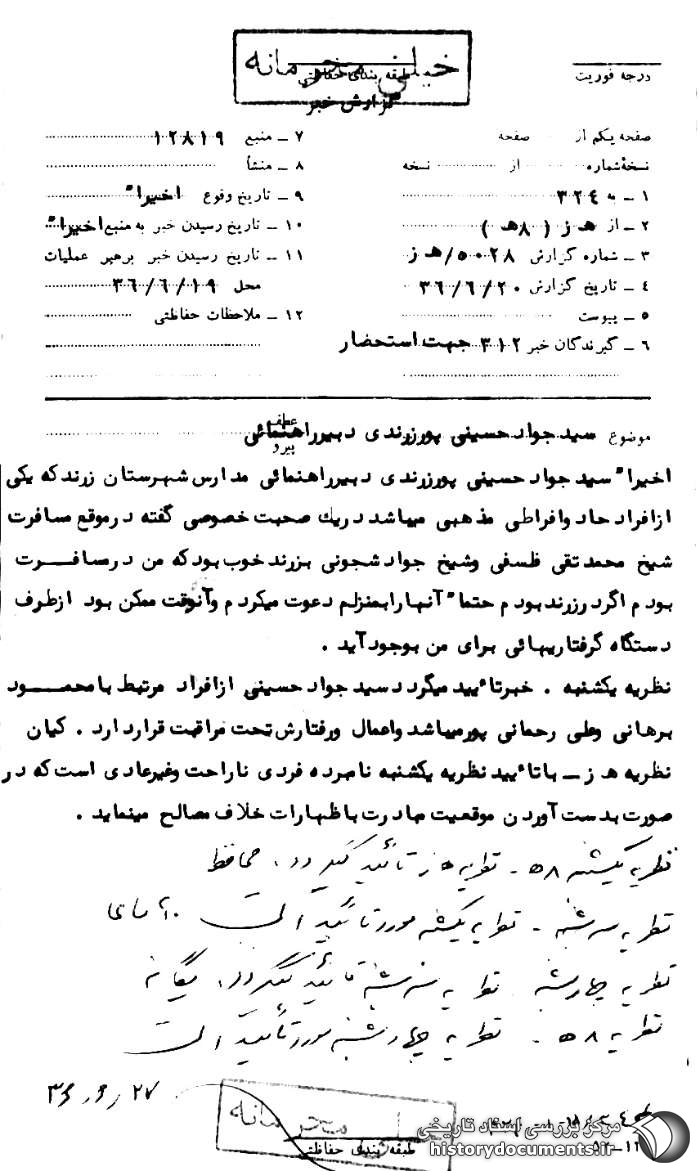 خیلی محرمانه
طبقه بندی حفاظتی
درجه فوریت
گزارش خبر
صفحه یکم از صفحه
نسخهٔ شماره از نسخه
۱ ـ به ۳۲۴
۲ ـ از هـ ز ( ۸هـ )
۳ ـ شماره گزارش ۵۰۲۸/هـ ز
۴ ـ تاریخ گزارش ۳۶/۶/۲۰
۵ ـ پیوست
۶ ـ گیرندگان خبر ۳۱۲ جهت استحضار
۷ ـ منبع ۱۲۸۱۹
۸ ـ منشأ
۹ ـ تاریخ وقوع اخیراً
۱۰ ـ تاریخ رسیدن خبر به منبع اخیراً
۱۱ ـ تاریخ رسیدن خبر برهبر عملیات
محل ۳۶/۶/۱۹
۱۲ ـ ملاحظات حفاظتی
موضوع سید جواد حسینی پورزرندی دبیر راهنمائی
عطف
پیرو
اخیراً سید جواد حسینی پورزرندی دبیر راهنمائی مدارس شهرستان زرند که یکی
از افراد حاد و افراطی مذهبی میباشد در یك صحبت خصوصی گفته در موقع مسافرت
شیخ محمد تقی فلسفی وشیخ جواد شجونی بزرند خوب بود که من در مسافـــرت
بودم اگر در زرند بودم حتماً آنها را بمنزلم دعوت میکردم وآنوقت ممکن بود از طرف
دستگاه گرفتاریهائی برای من بوجود آید .
نظریه یکشنبه . خبر تاءیید میگردد سید جواد حسینی از افراد مرتبط با محمـــود
برهانی وعلی رحمانی پور میباشد واعمال ورفتارش تحت مراقبت قرار دارد . کیان
نظریه هـ ز ـ با تاءیید نظریه یکشنبه نامبرده فردی ناراحت وغیر عادی است که در
صورت بدست آوردن موقعیت مبادرت باظهارات خلاف مصالح مینماید .
نظریه یکشنبه ۸هـ ـ نظریه هـ ز تأیید میگردد . محافظ
نظریه سه شنبه ـ نظریه یکشنبه مورد تأیید است
نظریه چهارشنبه نظریه سه شنبه تأیید میگردد . یگانه
نظریه ۸هـ ـ نظریه چهارشنبه مورد تأیید است
۳۶٫۶٫۲۷
محرمانه
طبقه بندی حفاظتی
مرکز بررسی اسناد تاریخی
historydocuments.ir